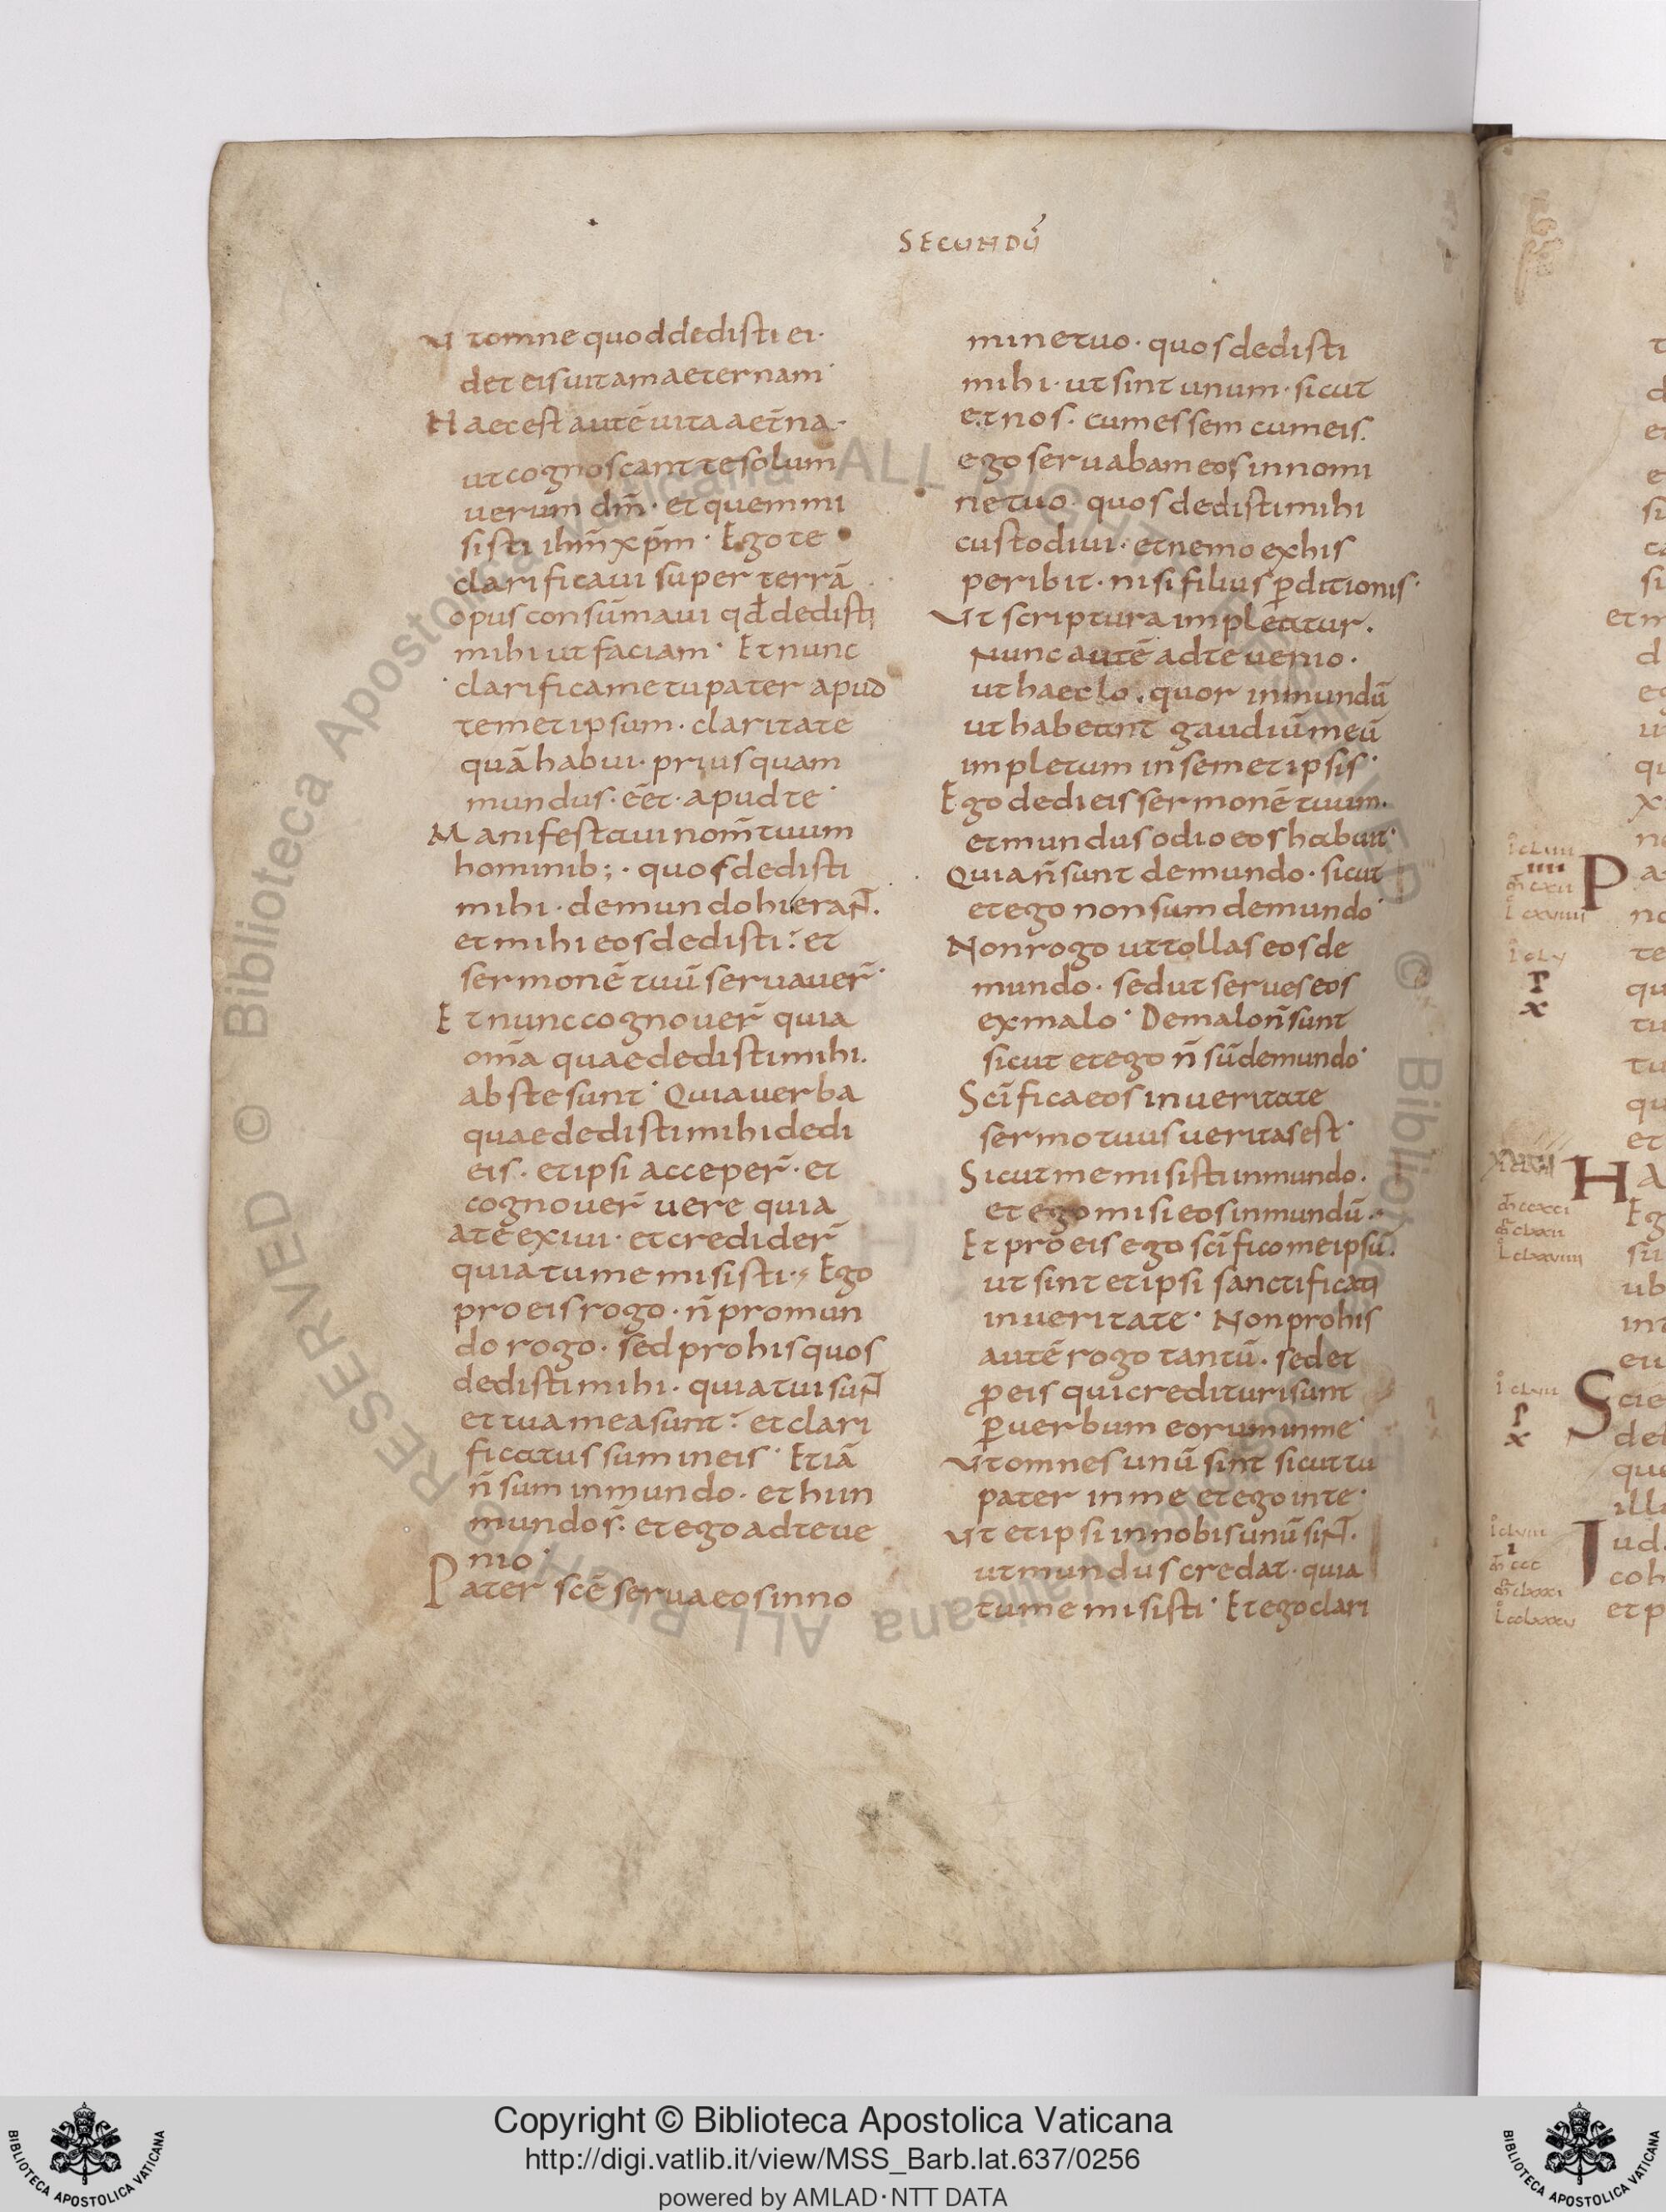 SECUNDŪ
Ut omne quod dedisti ei·
det eis uitam aeternam·
Haec est autē uita aet̄na·
ut cognoscant te solum
uerum dm̄· et quem mi
sisti ihm̄ xpm̄· Ego te
clarificaui super terrā
opus consūmaui qd̄ dedisti
mihi ut faciam· Et nunc
clarifica me tu pater apud
temetipsum· claritate
quā habui· priusquam
mundus· eēt· apud te·
Manifestaui nom̄ tuum
hominib;· quos dedisti
mihi· de mundo hi eran̄t.
et mihi eos dedisti: et
sermonē tuū seruauer̄·
Et nunc cognouer̄ quia
om̄a quae dedisti mihi.
abs te sunt· Quia uerba
quae dedisti mihi dedi
eis· et ipsi acceper̄· et
cognouer̄ uere quia
a te exiui· et credider̄
quia tu me misisti· Ego
pro eis rogo· n̄ pro mun
do rogo· sed pro his quos
dedisti mihi· quia tui sun̄t
et tua mea sunt: et clari
ficatus sum in eis· Et iā
n̄ sum in mundo· et hi in
mundo s̄· et ego ad te ue
nio·
Pater scē serua eos in no
mine tuo· quos dedisti
mihi· ut sint unum· sicut
et nos· cum essem cum eis.
ego seruabam eos in nomi
ne tuo· quos dedisti mihi
custodiui· et nemo ex his
peribit· nisi filius p̄ditionis·
Ut scriptura impleatur.
Nunc autē ad te uenio·
ut haec lo quor in mundū
ut habeant gaudiū meū
impletum in semetipsis·
Ego dedi eis sermonē tuum.
et mundus odio eos habuit·
Quia n̄ sunt de mundo· sicut
et ego non sum de mundo·
Non rogo ut tollas eos de
mundo· sed ut serues eos
ex malo· De malo n̄ sunt
sicut et ego n̄ sū de mundo·
Scīfica eos in ueritate
sermo tuus ueritas est·
Sicut me misisti in mundo·
et ego misi eos in mundū·
Et pro eis ego scīfico meipsū.
ut sint et ipsi sanctificati
in ueritate· Non pro his
autē rogo tantū· sed et
p eis qui credituri sunt
p̄ uerbum eorum in me·
Ut omnes unū sint sicut tu
pater in me et ego in te·
Ut et ipsi in nobis unū sin̄t.
ut mundus credat· quia
tu me misisti· Et ego clari
Copyright © Biblioteca Apostolica Vaticana
http://digi.vatlib.it/view/MSS_Barb.lat.637/0256
powered by AMLAD·NTT DATA